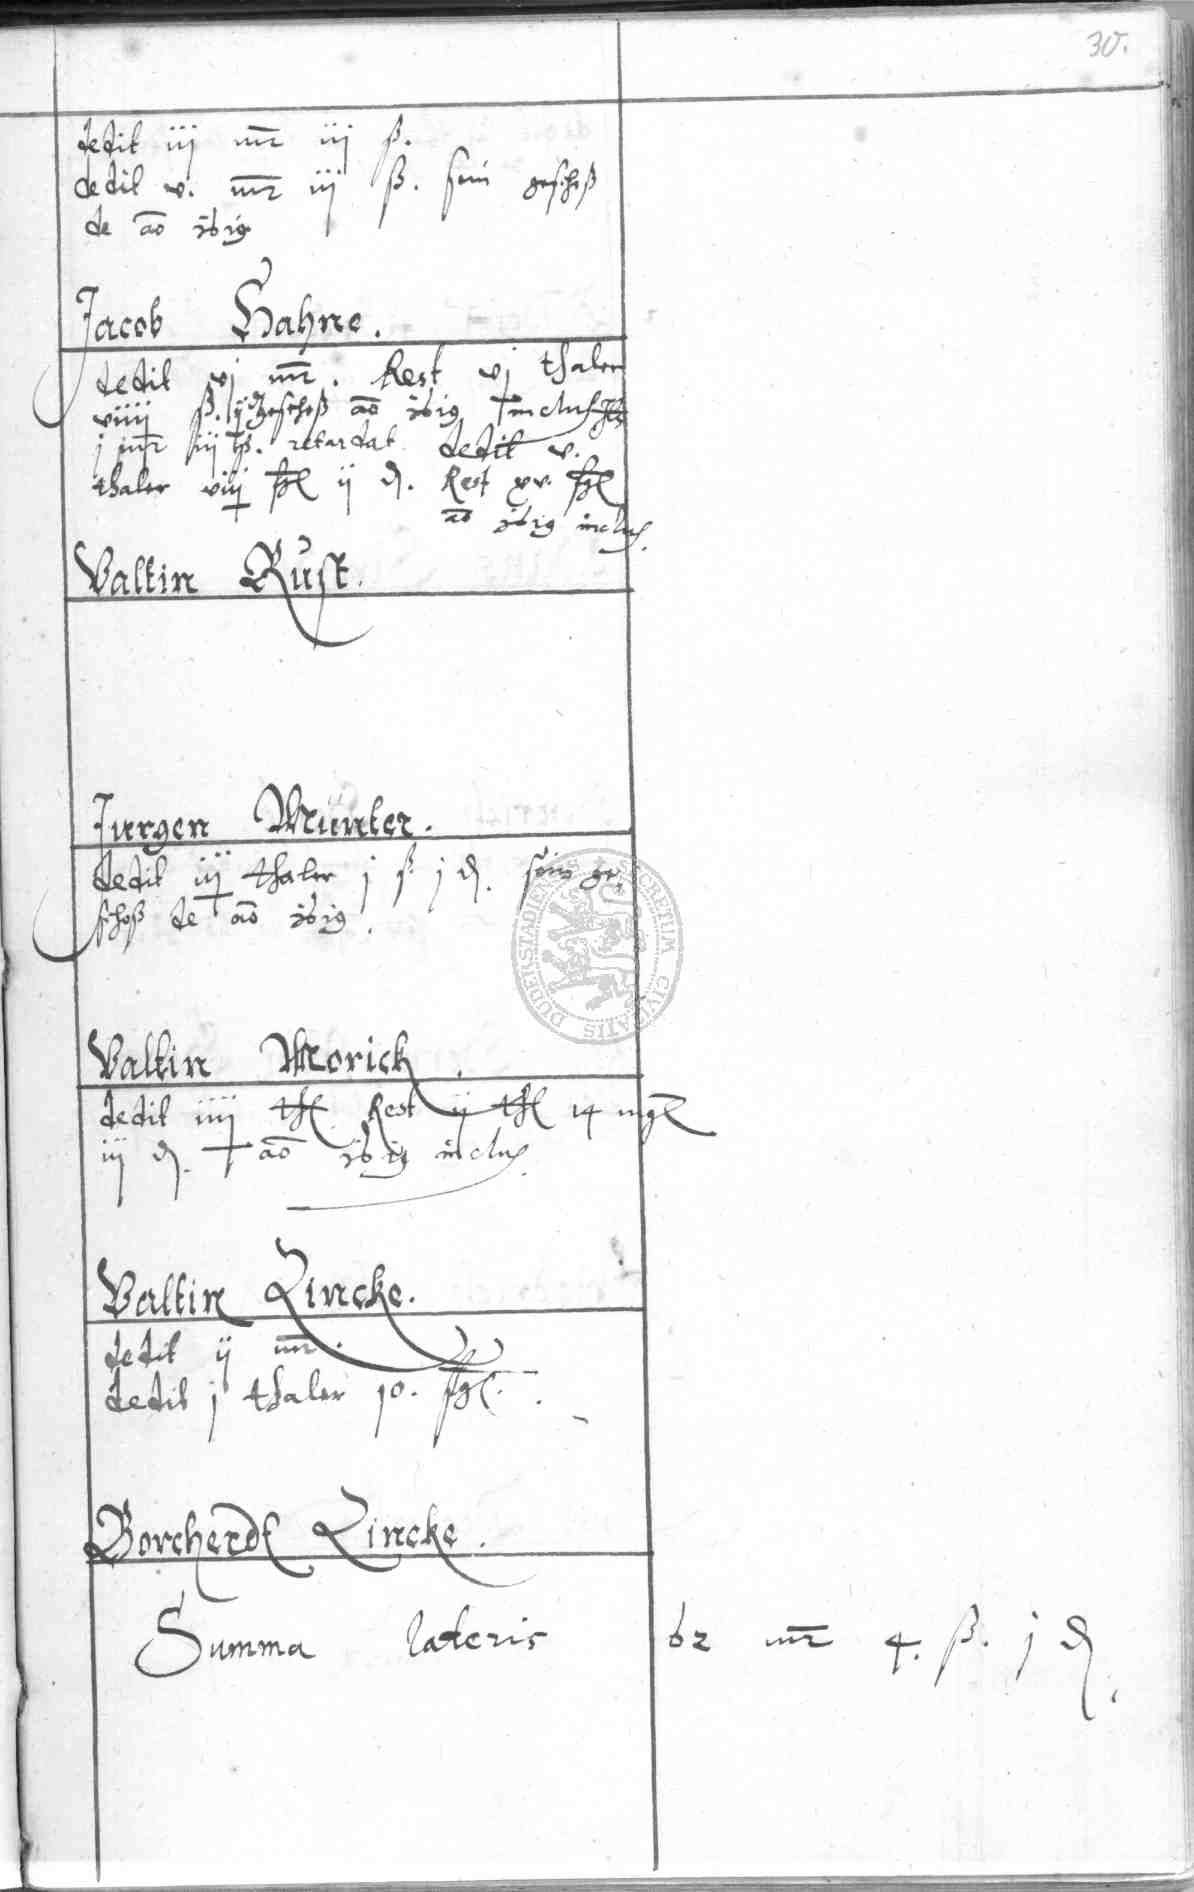 30.
dedit iij mr iij ß.
dedit v. mr iij ß. sein geschoß
de ao 1619
Jacob Hahne.
dedit vj mr. Rest vj thaler
viiij ß. geschoß ao 1619 inclus
j mr iij ß. retardat dedit v.
thaler viij ßgl ij d. Rest xv ßgl
ao 1619 inclus.
Valtin Rust.
Jurgen Munter.
dedit iij thaler j ß j d. sein ge
schoß de ao 1619.
Valtin Morick.
dedit iiij thl Rest ij thl 14 mgl
iij d. ao 1619 inclus
Valtin Lincke.
dedit ij mr.
dedit j thaler 10. ßgl.
Borcherdt Lincke.
Summa lateris 62 mr 4. ß. j d.
SECRETUM CIVITATIS DUDERSTADIENSIS